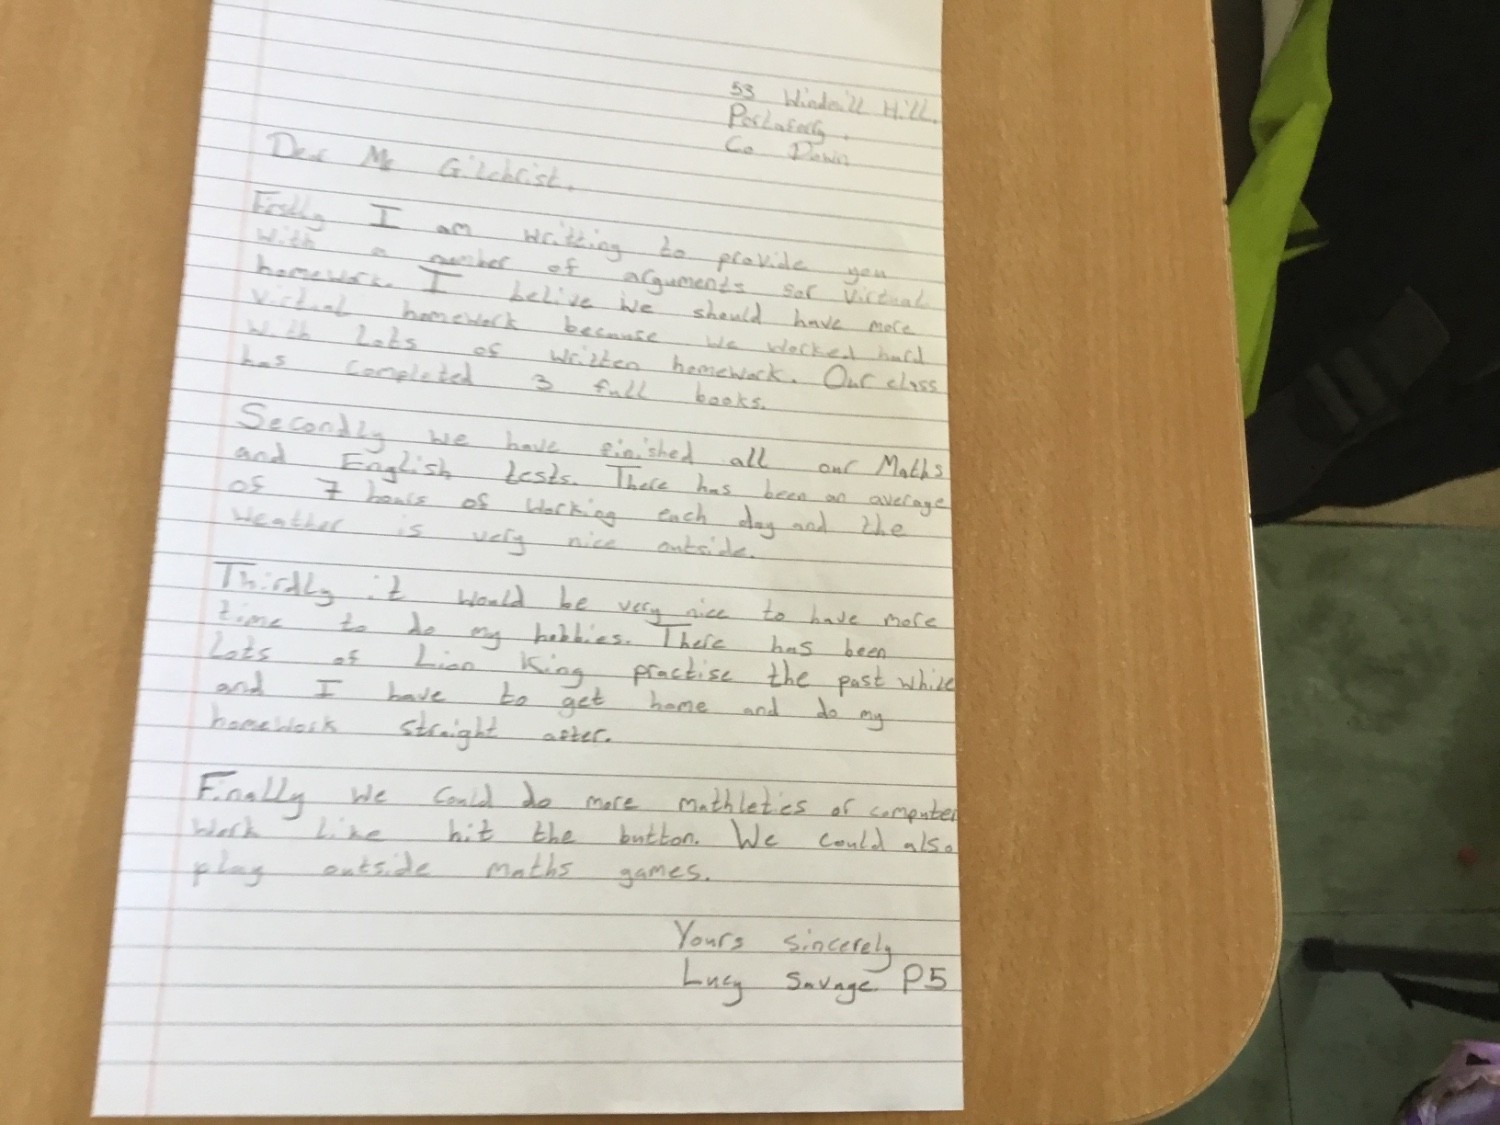 53 Windmill Hill.
Portaferry.
Co Down
Dear Mr Gilchrist.
Firstly I am writting to provide you
with a number of arguments for virtual
homework. I belive we should have more
virtual homework because we worked hard
with lots of written homework. Our class
has completed 3 full books.
Secondly we have finished all our Maths
and English tests. There has been an average
of 7 hours of working each day and the
weather is very nice outside.
Thirdly it would be very nice to have more
time to do my hobbies. There has been
lots of Lion King practise the past while
and I have to get home and do my
homework straight after.
Finally we could do more mathletics or computer
work like hit the button. We could also
play outside maths games.
Yours sincerely
Lucy Savage P5